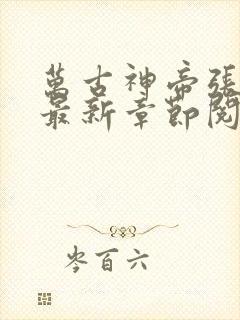 萬古神帝張
最新章節閱
岑百六